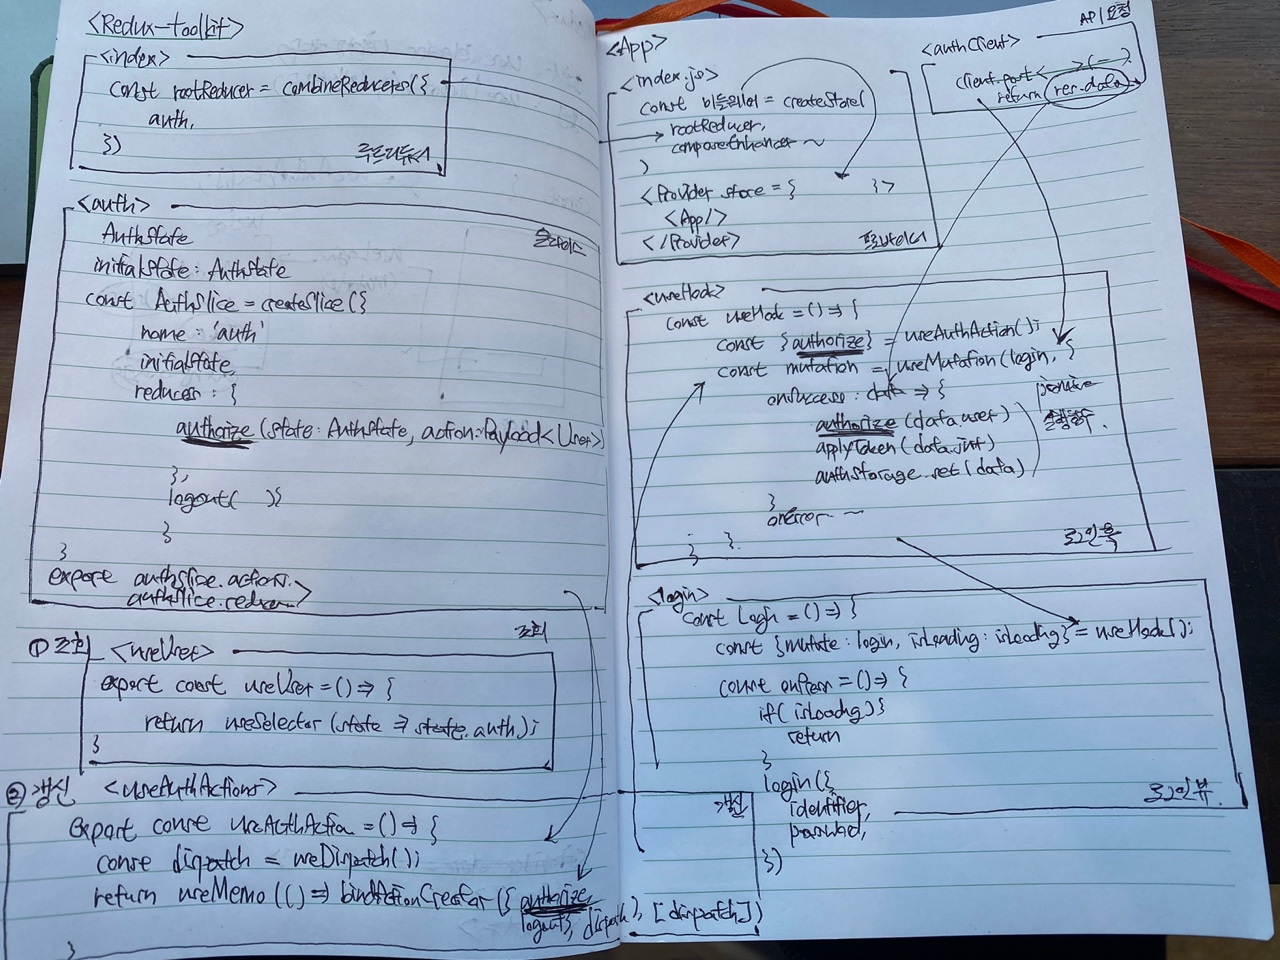 <Redux-toolkit>
<index>
const rootReducer = combineReducers({
auth,
})
루트리듀서
<auth>
슬라이스
AuthState
initialState: AuthState
const AuthSlice = createSlice({
name: 'auth'
initialState,
reducer: {
authorize (state: AuthState, action: Payload<User>)
},
logout( ){
}
}
export authSlice.action.
authSlice.reducer
① 조회
조회
<useUser>
export const useUser = () => {
return useSelector (state => state.auth);
}
② 갱신
<useAuthActions>
갱신
export const useAuthAction = () => {
const dispatch = useDispatch();
return useMemo (() => bindActionCreator ({ authorize,
logout}, dispatch), [dispatch])
}
<App>
<index.js>
const 미들웨어 = createStore(
rootReducer,
composeEnhancer ~
)
<Provider store = { }>
<App/>
</Provider>
프로바이더
API 요청
<authClient>
client.post< >( ~ )
return res.data
<useHook>
const useHook = () => {
const {authorize} = useAuthAction();
const mutation = useMutation(login, {
onSuccess: data => {
authorize (data.user)
applyToken (data.jwt)
authStorage.set (data)
promise
실행후.
}
onError ~
}.
}
로그인 훅
<login>
const Login = () => {
const {mutate: login, isLoading: isLoading} = useHook();
const onPress = () => {
if( isLoading){
return
}
login({
identifier,
password,
})
로그인 뷰.